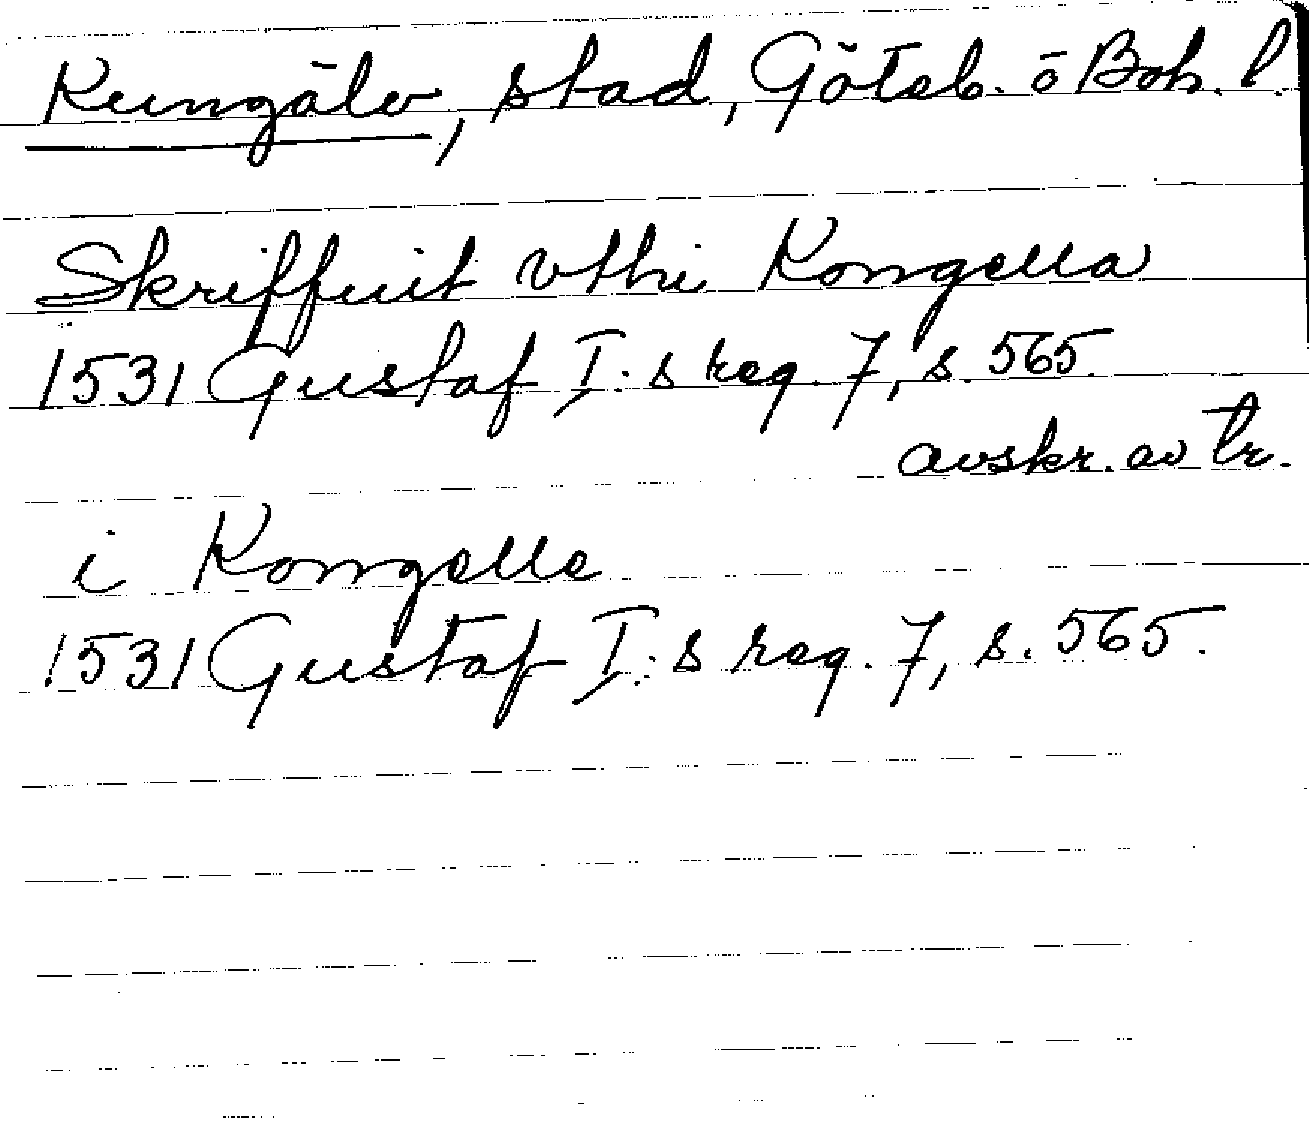 Kungälv, stad, Göteb. o Boh. l.
Skriffuit vthi Kongella
1531 Gustaf I:s reg. 7, s. 565.
avskr. av tr.
i Kongelle
1531 Gustaf I:s reg. 7, s. 565.